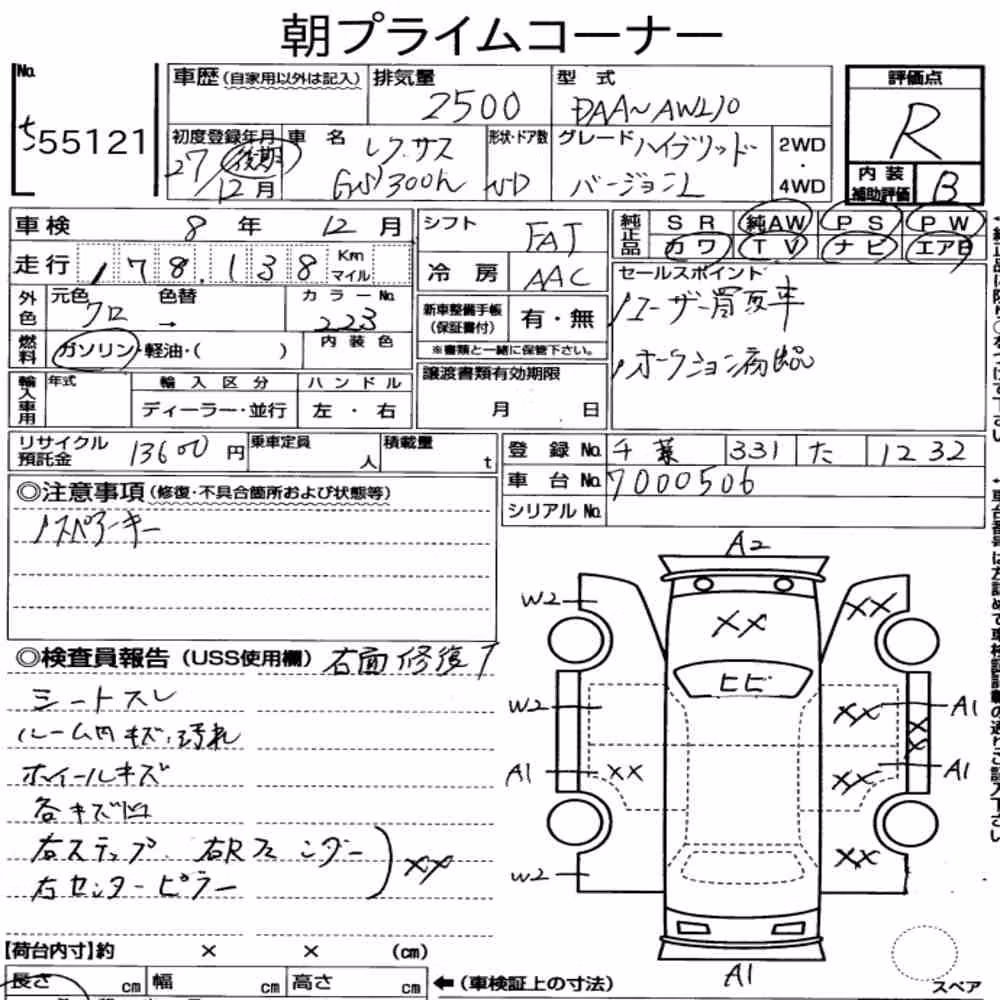 朝プライムコーナー
No.
55121
車歴(自家用以外は記入)
排気量
2500
型式
DAA~AWL10
評価点
R
初度登録年月
27/12月
後期
車名
レクサス
GS300h
形状・ドア数
4D
グレード ハイブリッド
バージョンL
2WD
・
4WD
内装
補助評価
B
車検 8年 12月
走行 178.138 Km
マイル
シフト FAT
冷房 AAC
純正品
SR 純AW PS PW
カワ TV ナビ エアB
外色
元色 クロ
色替 →
カラーNo.
223
燃料
ガソリン・軽油・( )
内装色
新車整備手帳
(保証書付)
有・無
※書類と一緒に保管下さい。
セールスポイント
ユーザー買取車
オークション初出品
輸入車用
年式
輸入区分
ディーラー・並行
ハンドル
左・右
譲渡書類有効期限
月 日
リサイクル
預託金
13600円
乗車定員
人
積載量
t
登録No. 千葉 331 た 1232
車台No. 7000506
シリアルNo.
◎注意事項(修復・不具合箇所および状態等)
スペアーキー
◎検査員報告(USS使用欄) 右面修復
シートスレ
ルーム内キズ、汚れ
ホイールキズ
各キズ凹
右ステップ、右Rフェンダー
右センターピラー
XX
A2
W2
XX
XX
ヒビ
W2
XX
A1
XX
A1
XX
XX
A1
W2
XX
A1
スペア
【荷台内寸】約 × × (cm)
長さ cm 幅 cm 高さ cm
←(車検証上の寸法)